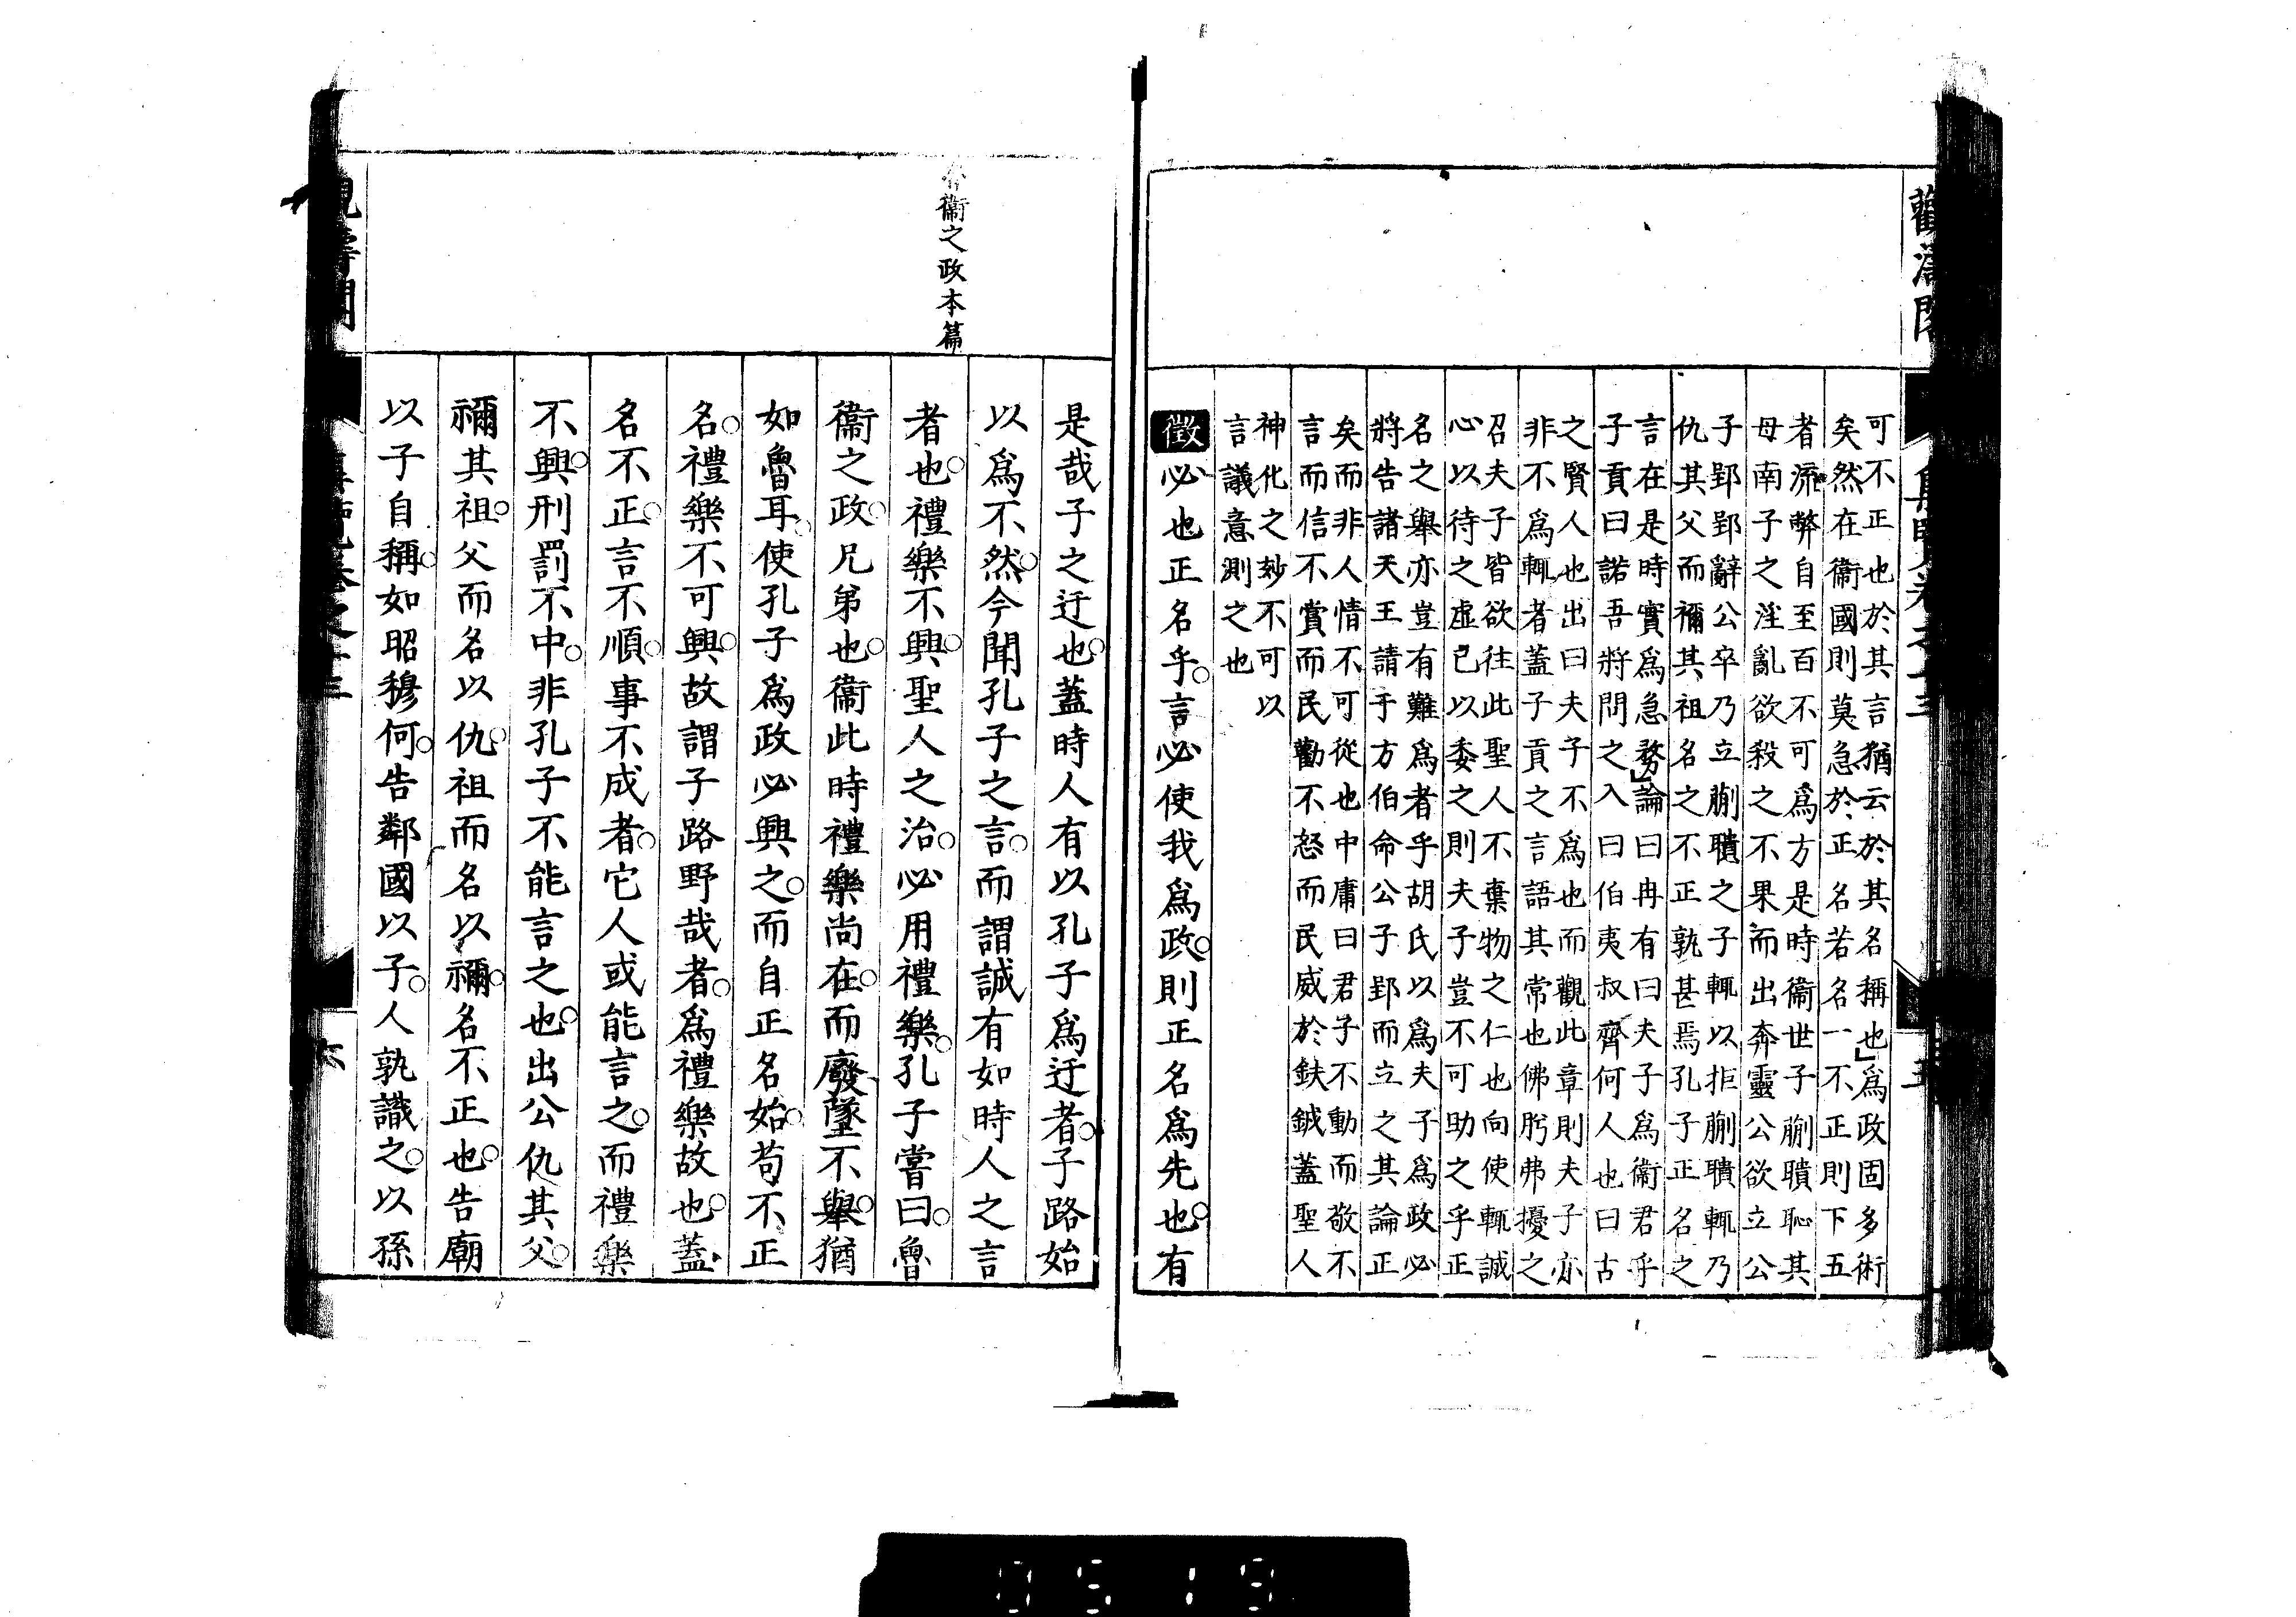 可不正也於其言猶云於其名稱也」爲政固多術
矣然在衞國則莫急於正名若名一不正則下五
者流弊自至百不可爲方是時衞世子蒯聵恥其
母南子之淫亂欲殺之不果而出奔靈公欲立公
子郢郢辭公卒乃立蒯聵之子輒以拒蒯聵輒乃
仇其父而禰其祖名之不正孰甚焉孔子正名之
言在是時實爲急務」論曰冉有曰夫子爲衞君乎
子貢曰諾吾將問之入曰伯夷叔齊何人也曰古
之賢人也出曰夫子不爲也而觀此章則夫子亦
非不爲輒者蓋子貢之言語其常也佛肸弗擾之
召夫子皆欲往此聖人不棄物之仁也向使輒誠
心以待之虛己以委之則夫子豈不可助之乎正
名之舉亦豈有難爲者乎胡氏以爲夫子爲政必
將告諸天王請于方伯命公子郢而立之其論正
矣而非人情不可從也中庸曰君子不動而敬不
言而信不賞而民勸不怒而民威於鈇鉞蓋聖人
神化之玅不可以
言議意測之也
徵必也正名乎言必使我爲政則正名爲先也有
是哉子之迂也蓋時人有以孔子爲迂者子路始
以爲不然今聞孔子之言而謂誠有如時人之言
者也禮樂不興聖人之治必用禮樂孔子嘗曰魯
衞之政兄弟也衞此時禮樂尚在而廢墜不舉猶
如魯耳使孔子爲政必興之而自正名始苟不正
名禮樂不可興故謂子路野哉者爲禮樂故也蓋
名不正言不順事不成者它人或能言之而禮樂
不興刑罰不中非孔子不能言之也出公仇其父
禰其祖父而名以仇祖而名以禰名不正也告廟
以子自稱如昭穆何告鄰國以子人孰識之以孫
衞之政本篇
六